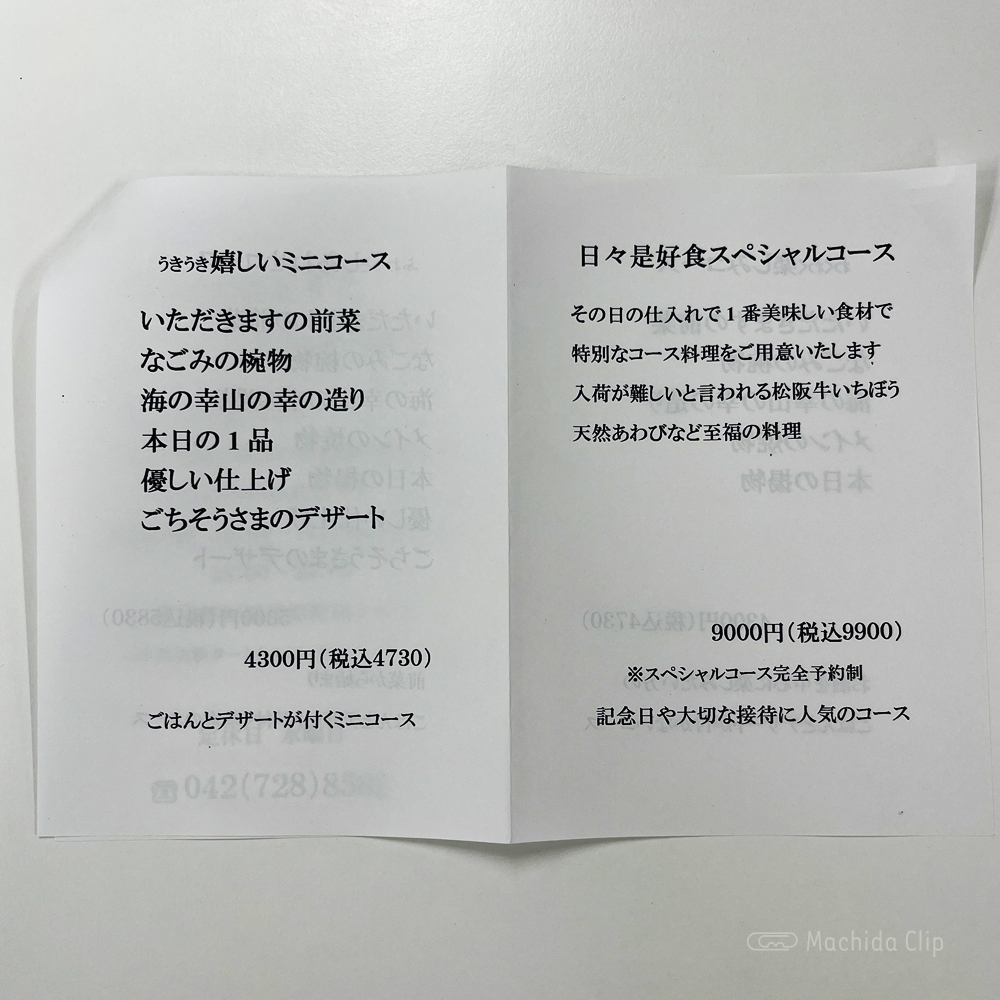 うきうき嬉しいミニコース
いただきますの前菜
なごみの椀物
海の幸山の幸の造り
本日の1品
優しい仕上げ
ごちそうさまのデザート
4300円(税込4730)
ごはんとデザートが付くミニコース
042(728)85
日々是好食スペシャルコース
その日の仕入れで1番美味しい食材で
特別なコース料理をご用意いたします
入荷が難しいと言われる松阪牛いちぼう
天然あわびなど至福の料理
9000円(税込9900)
※スペシャルコース完全予約制
記念日や大切な接待に人気のコース
Machida Clip